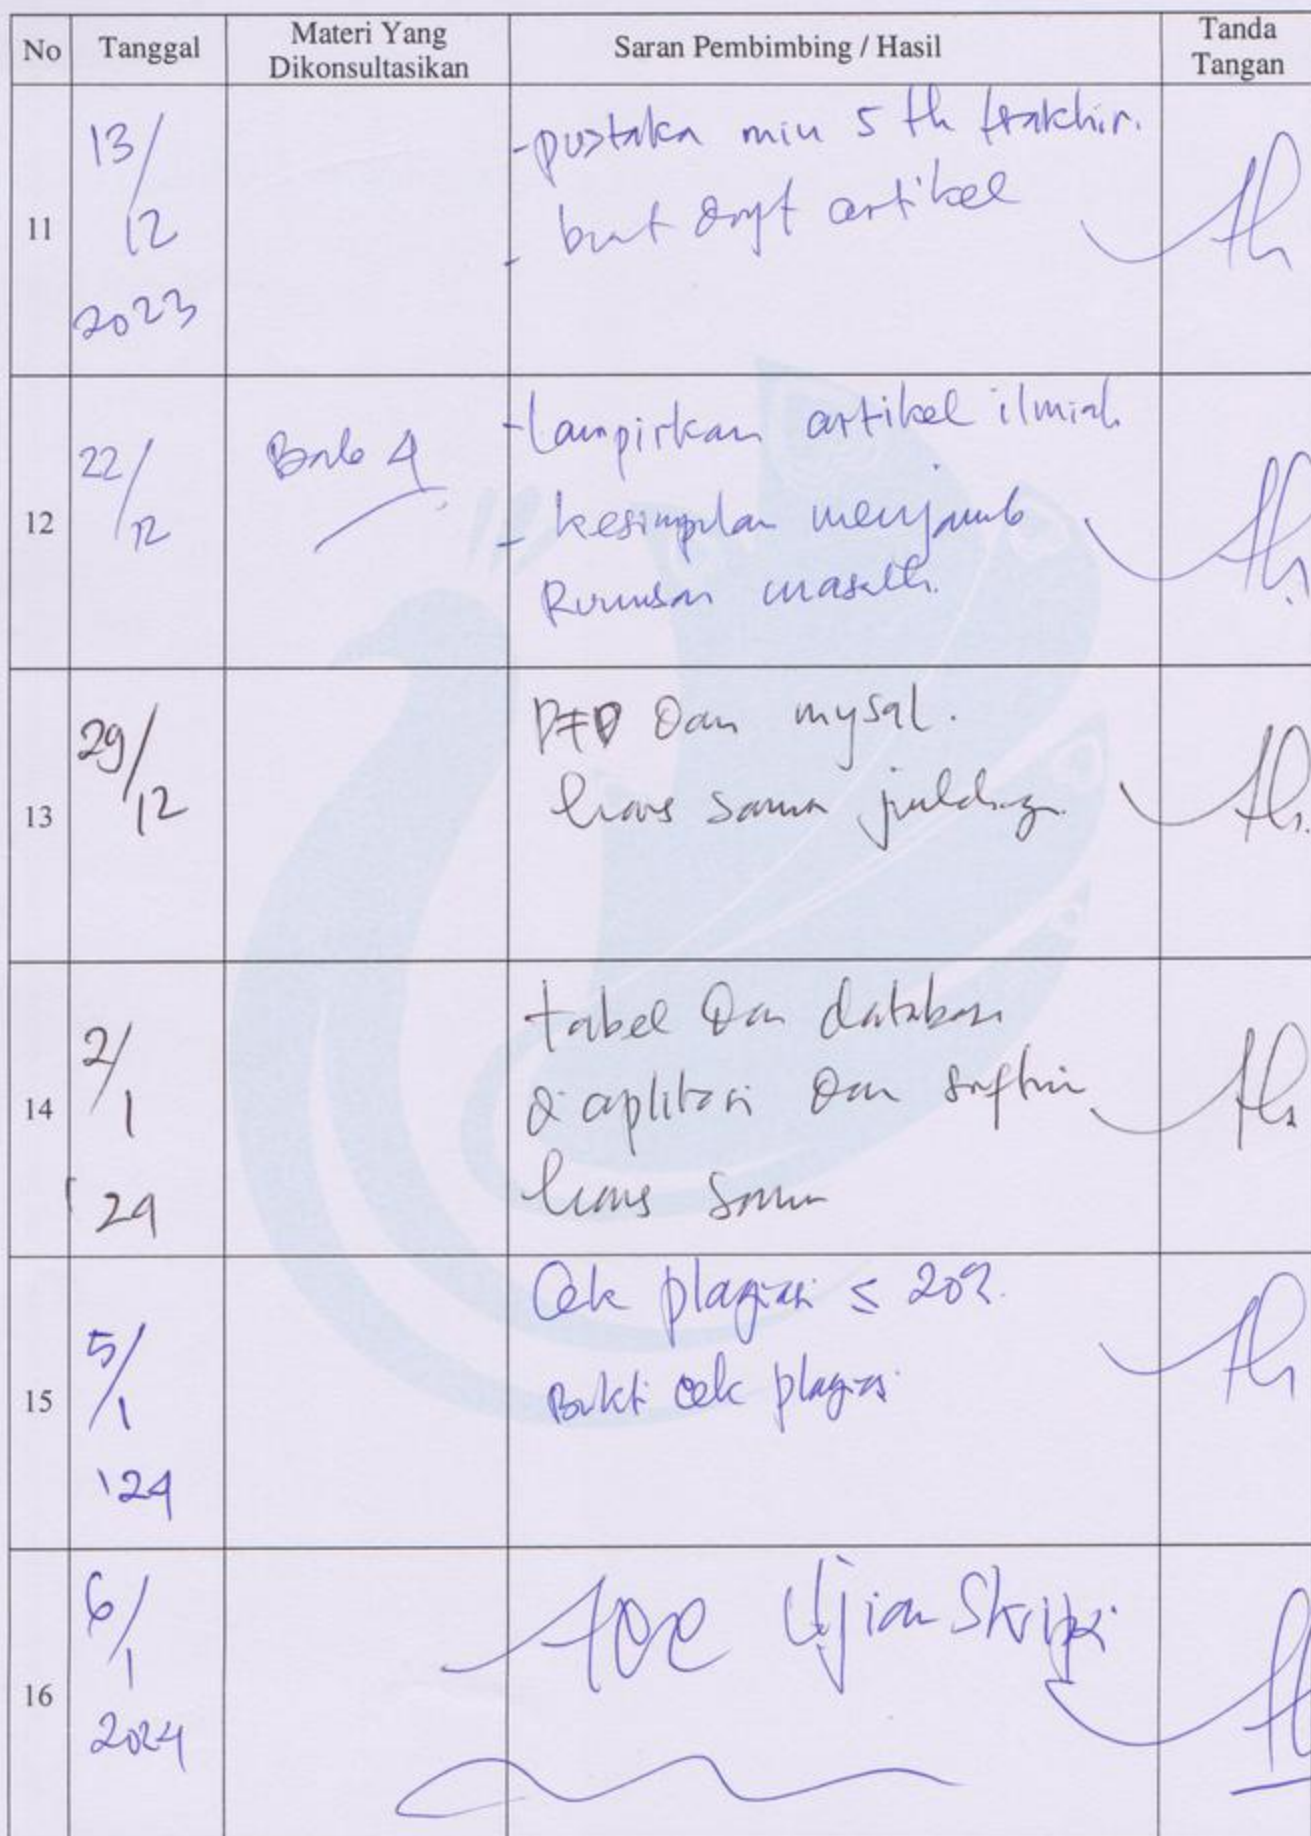 No Tanggal Materi Yang Dikonsultasikan Saran Pembimbing / Hasil Tanda Tangan
11 13/12 2023
- pustaka min 5 th terakhir.
- buat draft artikel
12 22/12 Bab 4
- lampirkan artikel ilmiah
- kesimpulan menjawab
Rumusan masalah.
13 29/12
dan mysql.
harus sama
14 2/1 24
tabel dan database
di aplikasi dan
harus sama
15 5/1 '24
Cek plagiasi ≤ 20%.
Bukti cek plagiasi
16 6/1 2024
Acc Ujian Skripsi